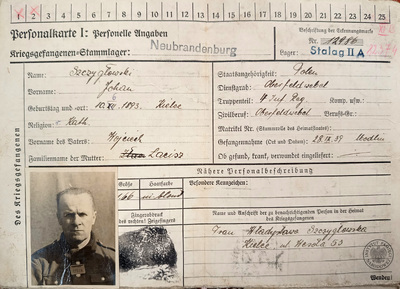 Personalkarte I: Personelle Angaben
Beschriftung der Erkennungsmarke
Nr.
Kriegsgefangenen-Stammlager: Neubrandenburg
Lager: Stalag II A
Des Kriegsgefangenen
Name: Szczygłowski
Vorname: Johan
Geburtstag und -ort: 1893. Kielce
Religion: Kath
Vorname des Vaters: Wojciech
Familienname der Mutter:
Staatsangehörigkeit: Polen
Dienstgrad: Oberfeldwebel
Truppenteil: 4 Inf. Reg. Komp. usw.:
Zivilberuf: Oberfeldwebel Berufs-Gr.:
Matrikel Nr. (Stammrolle des Heimatstaates):
Gefangennahme (Ort und Datum): 28.IX.39 Modlin
Ob gesund, krank, verwundet eingeliefert:
Nähere Personalbeschreibung
Größe
Haarfarbe
Besondere Kennzeichen:
Fingerabdruck
des rechten Zeigefingers
Name und Anschrift der zu benachrichtigenden Person in der Heimat
des Kriegsgefangenen
Frau Władysława Szczygłowska
Kielce ul.
Wenden!